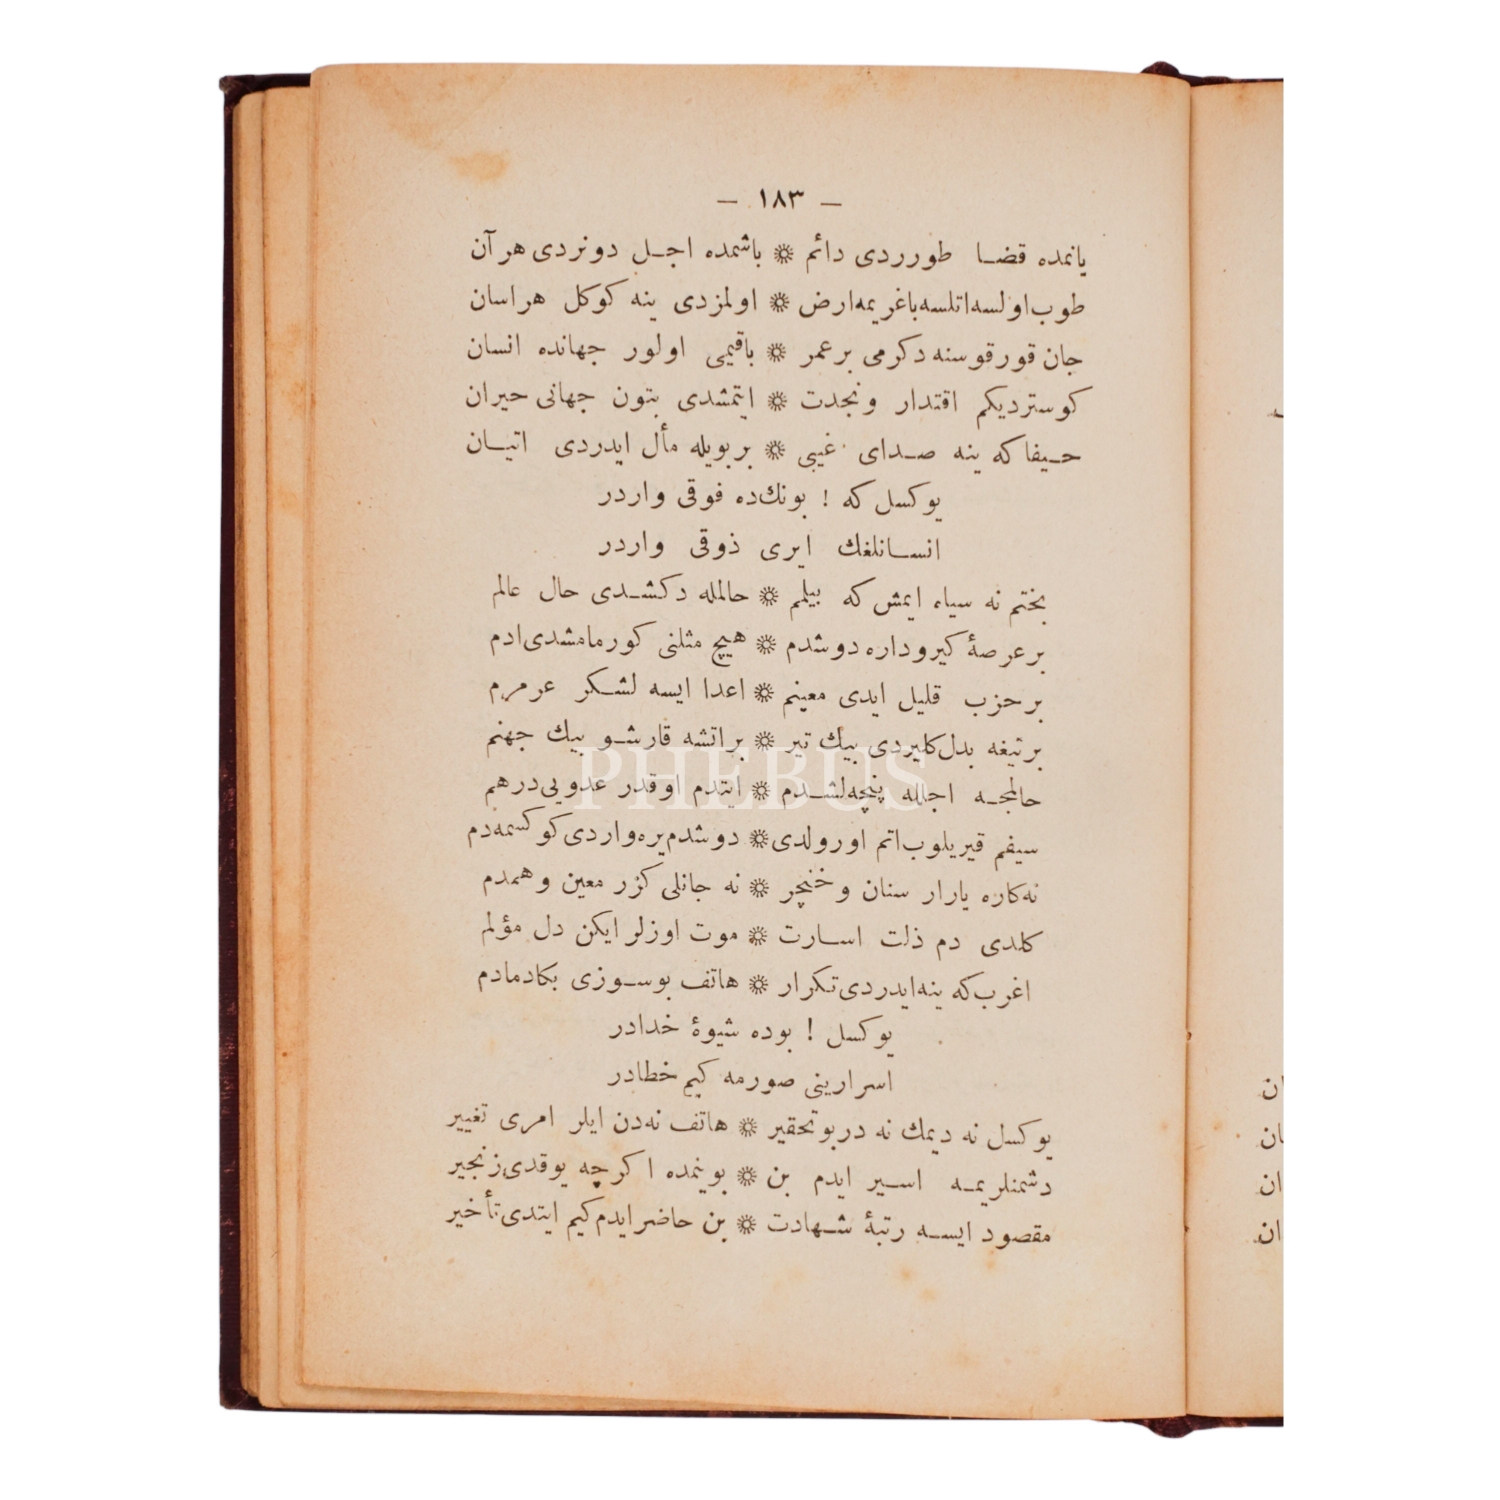 — ١٨٣ —
يانمده قضا طورردی دائم ❊ باشمده اجل دونردی هر آن
طوب اولسه اتلسه باغريمه ارض ❊ اولمزدی ينه كوكل هراسان
جان قورقوسنه دكرمی بر عمر ❊ باقيمی اولور جهانده انسان
كوسترديكم اقتدار و نجدت ❊ ايتمشدی بتون جهانی حيران
حيفا كه ينه صدای غيبی ❊ بر بويله مأل ايدردی اتيان
يوكسل كه ! بونك ده فوقی واردر
انسانلغك ايری ذوقی واردر
بختم نه سياه ايمش كه بيلمم ❊ حالمله دكشدی حال عالم
بر عرصۀ كيروداره دوشدم ❊ هيچ مثلنی كورمامشدی ادم
بر حزب قليل ايدی معينم ❊ اعدا ايسه لشكر عرمرم
بر تيغه بدل كليردی بيك تير ❊ بر اتشه قارشو بيك جهنم
حالمجه اجلله پنچه لشدم ❊ ايتدم اوقدر عدويی درهم
سيفم قيريلوب اتم اورولدی ❊ دوشدم يره واردی كوكسمه دم
نه كاره يارار سنان و خنچر ❊ نه جانلی كزر معين و همدم
كلدی دم ذلت اسارت ❊ موت اوزلر ايكن دل مؤلم
اغرب كه ينه ايدردی تكرار ❊ هاتف بو سوزی بكا دمادم
يوكسل ! بوده شيوۀ خدادر
اسرارينی صورمه كيم خطادر
يوكسل نه ديمك نه در بو تحقير ❊ هاتف نه دن ايلر امری تغيير
دشمنلريمه اسير ايدم بن ❊ بوينمده اكرچه يوقدی زنجير
مقصود ايسه رتبۀ شهادت ❊ بن حاضر ايدم كيم ايتدی تأخير
PHEBUS